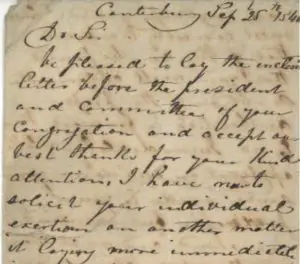 Canterbury Sep 25th 184
Dr Sir
be pleased to lay the enclos
letter before the president
and Committee of your
Congregation and accept our
best thanks for your kind
attention, I have now to
solicit your individual
exertion on another matter
it being more immediatel